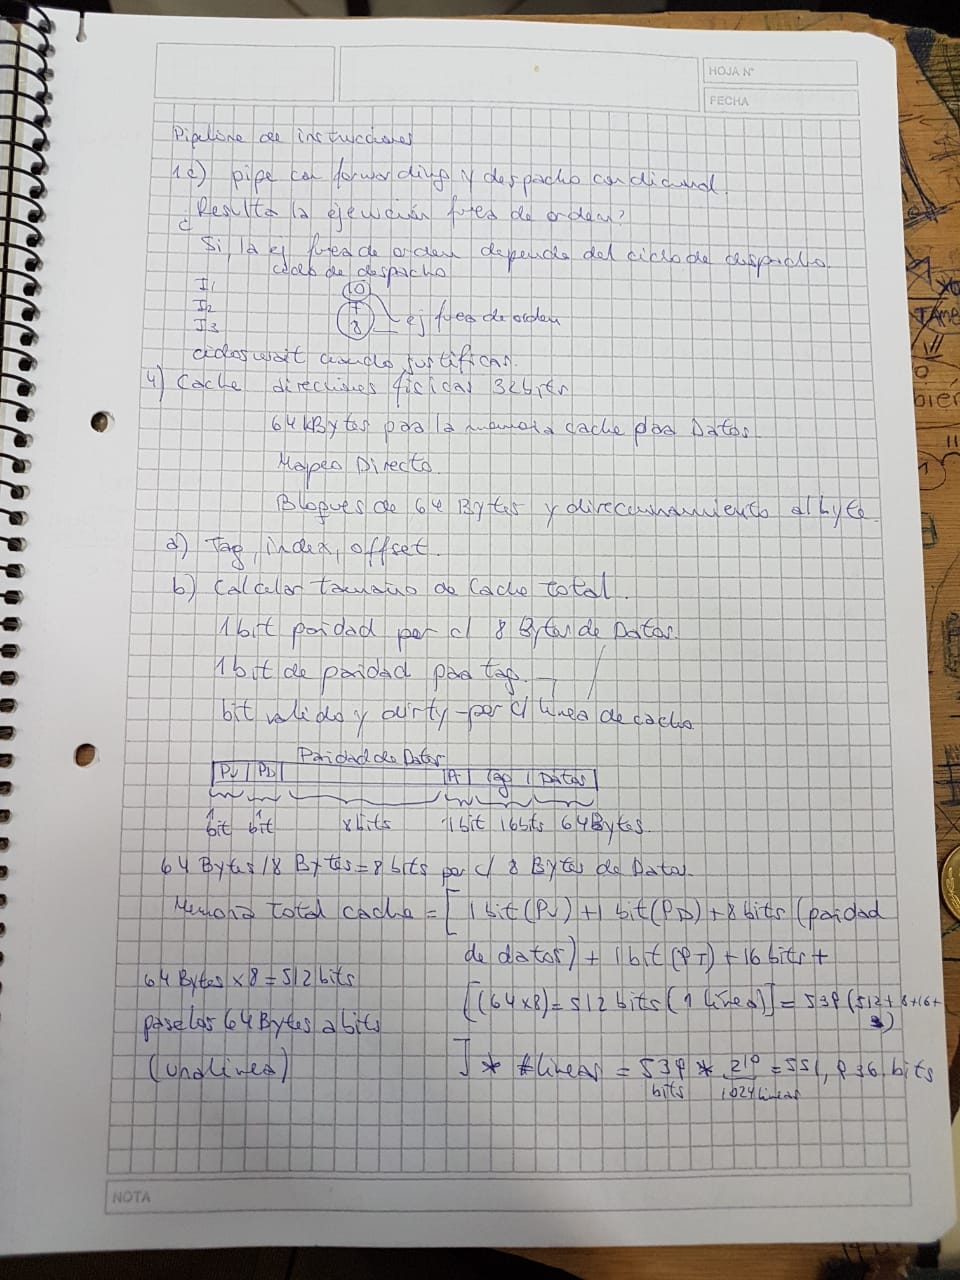 HOJA N°
FECHA
Pipeline de instrucciones
1c) pipe con forwarding y despacho condicional.
¿Resulta la ejecución fuera de orden?
Si, la ej fuera de orden depende del ciclo de despacho.
ciclos de despacho
I1 10
I2 7
I3 8 ej fuera de orden
ciclos wait cuando justificas.
4) Cache direcciones ficicas 32bits
64kBytes para la memoria cache para Datos
Mapeo Directo.
Bloques de 64 Bytes y direccionamiento al byte
a) Tag, index, offset.
b) Calcular tamaño de Cache total.
1 bit paridad por c/ 8 Bytes de Datos.
1 bit de paridad para tag.
bit valido y dirty - por c/ linea de cache
Paridad de Datos
PV | PD | | | Tag | Datos |
1 bit 1 bit 8 bits 1 bit 16 bits 64 Bytes
64 Bytes / 8 Bytes = 8 bits por c/ 8 Bytes de Datos.
Memoria total cache = [ 1 bit (PV) + 1 bit (PD) + 8 bits (paridad
de datos) + 1 bit (PT) + 16 bits +
64 Bytes x 8 = 512 bits
[(64x8) = 512 bits (1 linea)] = 539 (512 + 8 + 16 + 3)
paselos 64 Bytes a bits
(una linea)
] * #lineas = 539 * 2^10 = 551,936 bits
bits 1024 lineas
NOTA